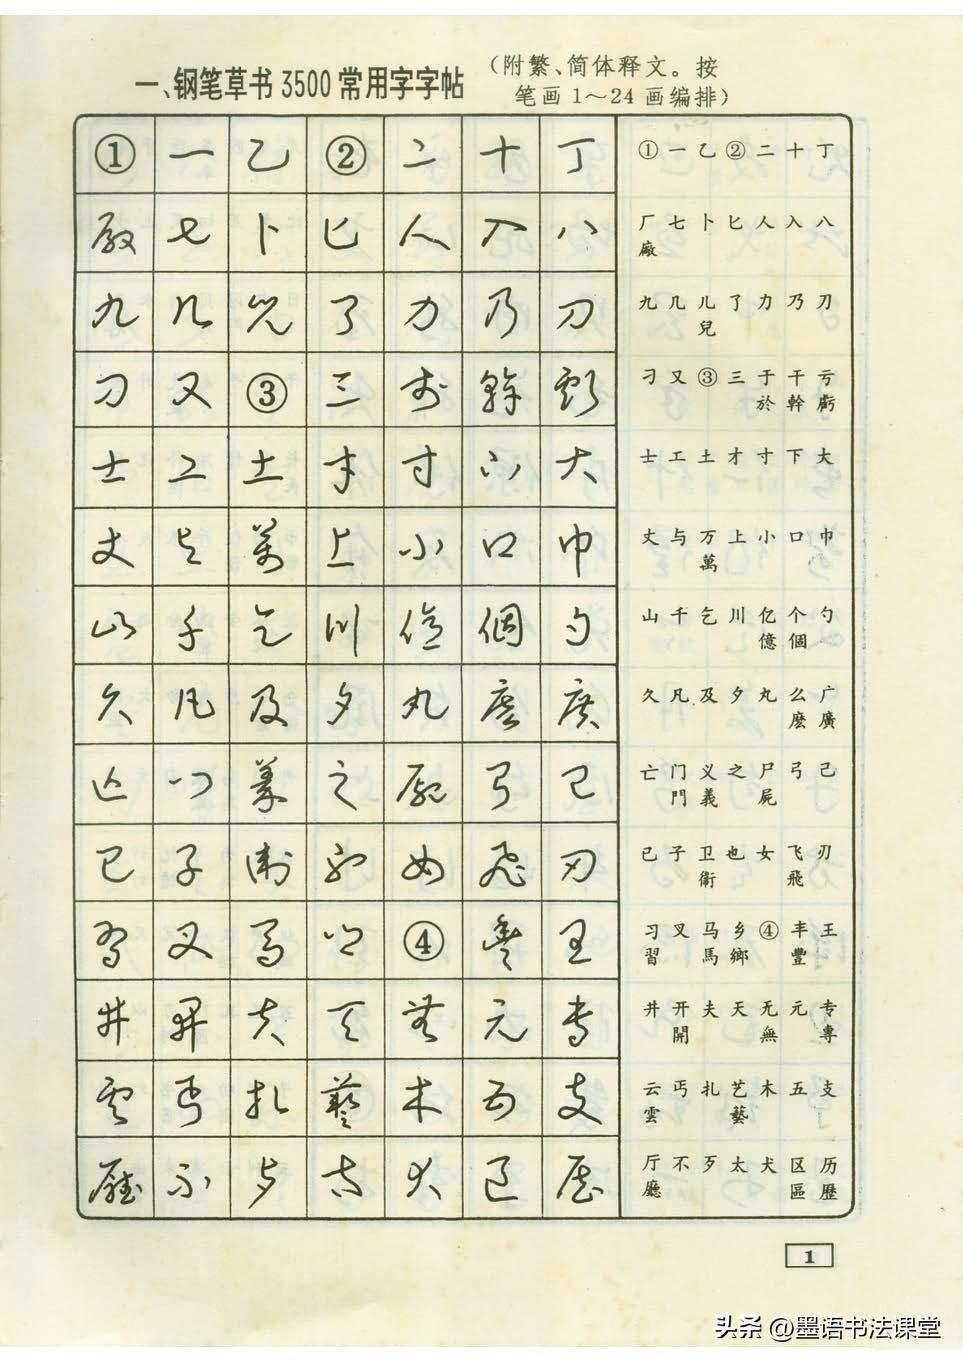 一、钢笔草书3500常用字字帖
(附繁、简体释文。按
笔画1～24画编排)
① 一 乙 ② 二 十 丁
廠 七 卜 匕 人 入 八
九 几 兒 了 力 乃 刀
刁 又 ③ 三 於 幹 虧
士 工 土 才 寸 下 大
丈 与 萬 上 小 口 巾
山 千 乞 川 億 個 勺
久 凡 及 夕 丸 麽 廣
亡 門 義 之 屍 弓 己
已 子 衛 也 女 飛 刃
習 叉 馬 鄉 ④ 豐 王
井 開 夫 天 無 元 專
雲 丐 扎 藝 木 五 支
廳 不 歹 太 犬 區 歷
① 一 乙 ② 二 十 丁
厂 七 卜 匕 人 入 八
廠
九 几 儿 了 力 乃 刀
兒
刁 又 ③ 三 于 干 亏
於 幹 虧
士 工 土 才 寸 下 大
丈 与 万 上 小 口 巾
萬
山 千 乞 川 亿 个 勺
億 個
久 凡 及 夕 丸 么 广
麽 廣
亡 门 义 之 尸 弓 己
門 義 屍
已 子 卫 也 女 飞 刃
衛 飛
习 叉 马 乡 ④ 丰 王
習 馬 鄉 豐
井 开 夫 天 无 元 专
開 無 專
云 丐 扎 艺 木 五 支
雲 藝
厅 不 歹 太 犬 区 历
廳 區 歷
1
头条 @墨语书法课堂